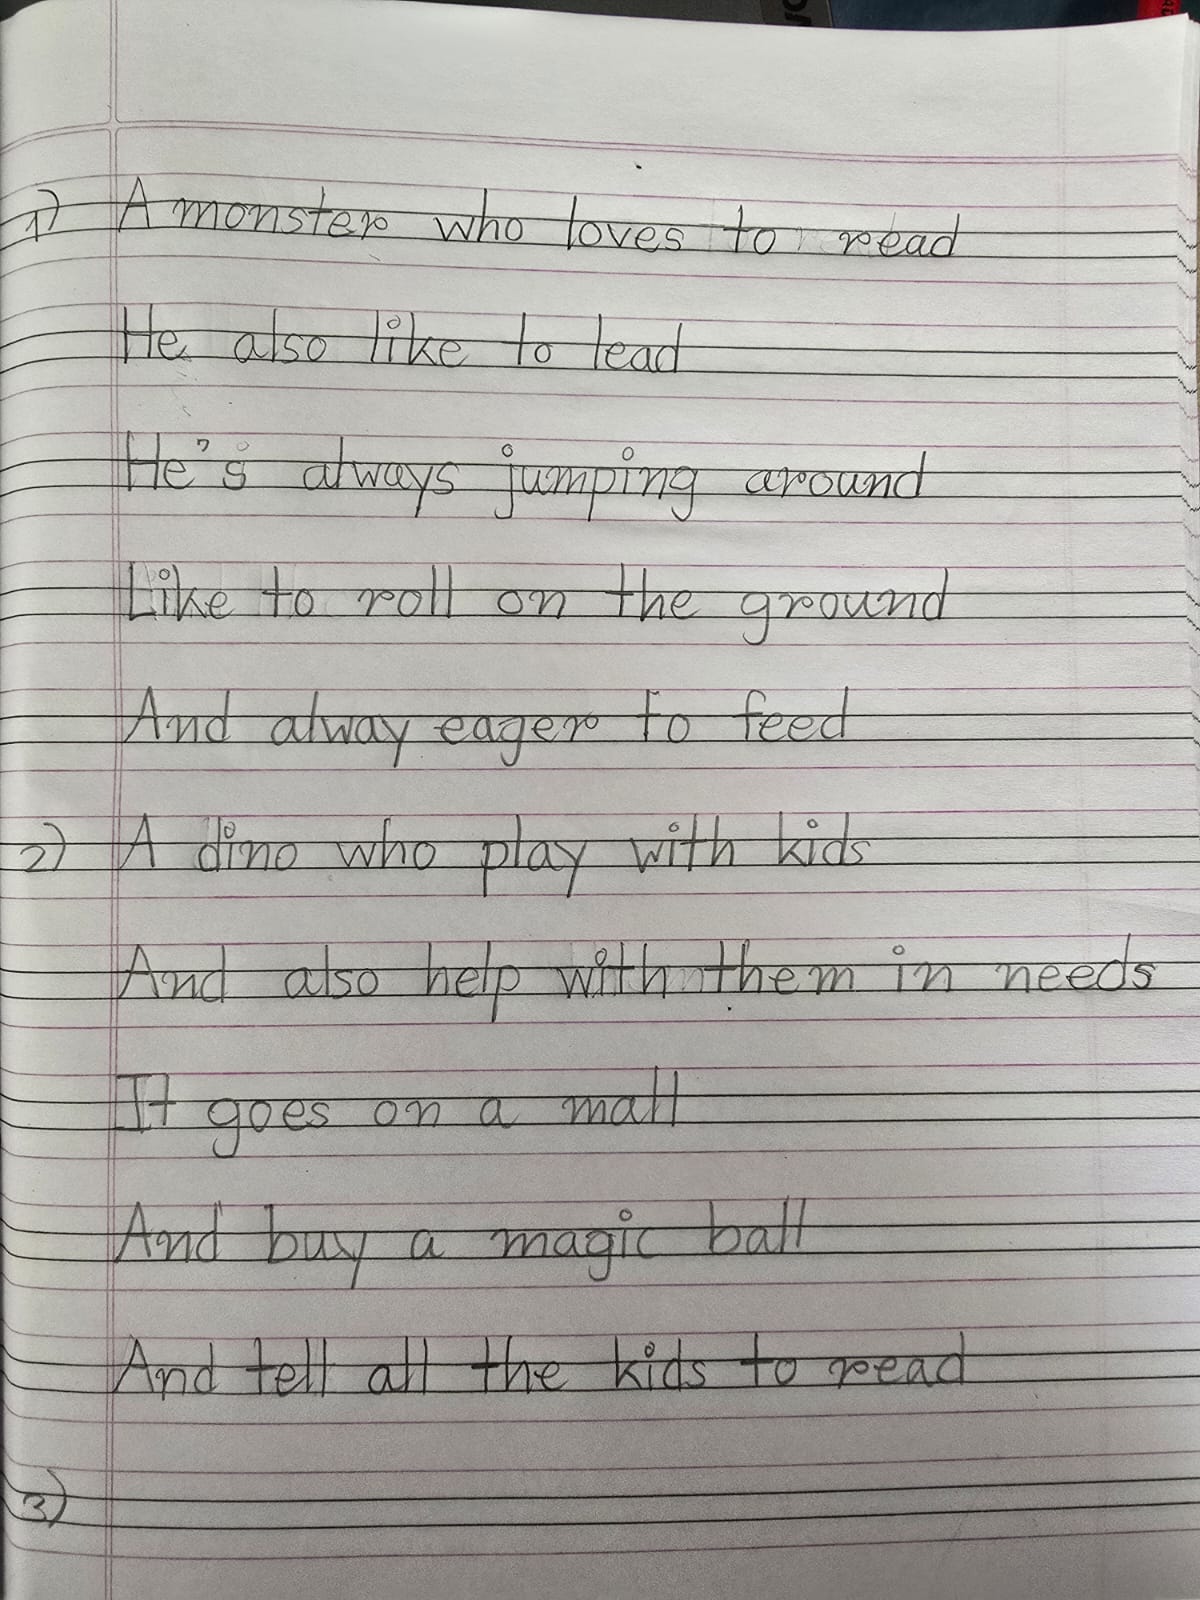 1) A monster who loves to read
He also like to lead
He's always jumping around
Like to roll on the ground
And alway eager to feed
2) A dino who play with kids
And also help with them in needs
It goes on a mall
And buy a magic ball
And tell all the kids to read
3)